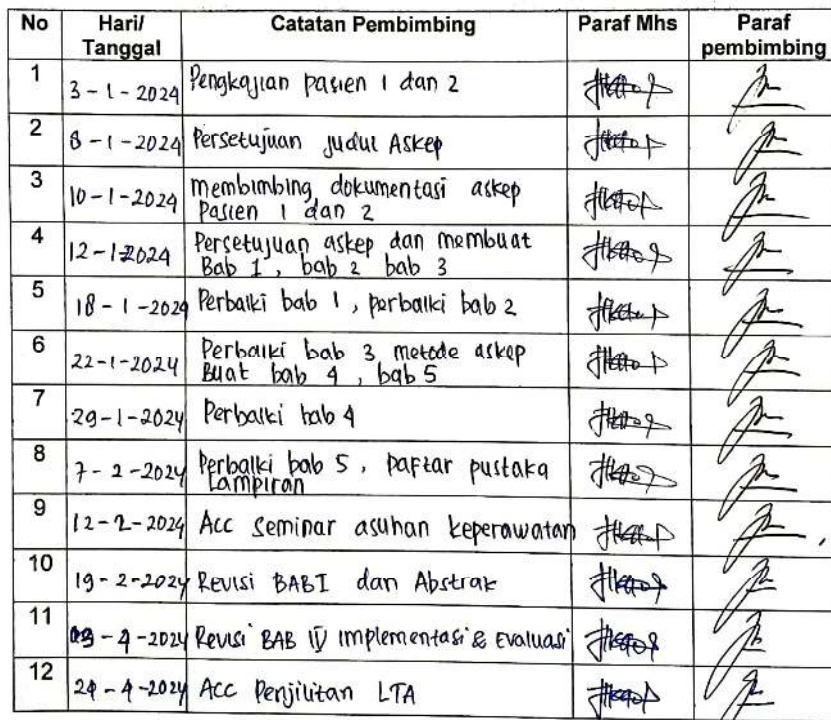 No Hari/ Tanggal Catatan Pembimbing Paraf Mhs Paraf pembimbing
1 3-1-2024 Pengkajian pasien 1 dan 2
2 8-1-2024 Persetujuan judul Askep
3 10-1-2024 membimbing dokumentasi askep
Pasien 1 dan 2
4 12-1-2024 Persetujuan askep dan membuat
Bab 1, bab 2 bab 3
5 18-1-2024 Perbaiki bab 1, perbaiki bab 2
6 22-1-2024 Perbaiki bab 3, metode askep
Buat bab 4, bab 5
7 29-1-2024 Perbaiki bab 4
8 7-2-2024 Perbaiki bab 5, Daftar pustaka
Lampiran
9 12-2-2024 Acc seminar asuhan keperawatan
10 19-2-2024 Revisi BAB I dan Abstrak
11 -4-2024 Revisi BAB IV implementasi & Evaluasi
12 24-4-2024 Acc Penjilitan LTA